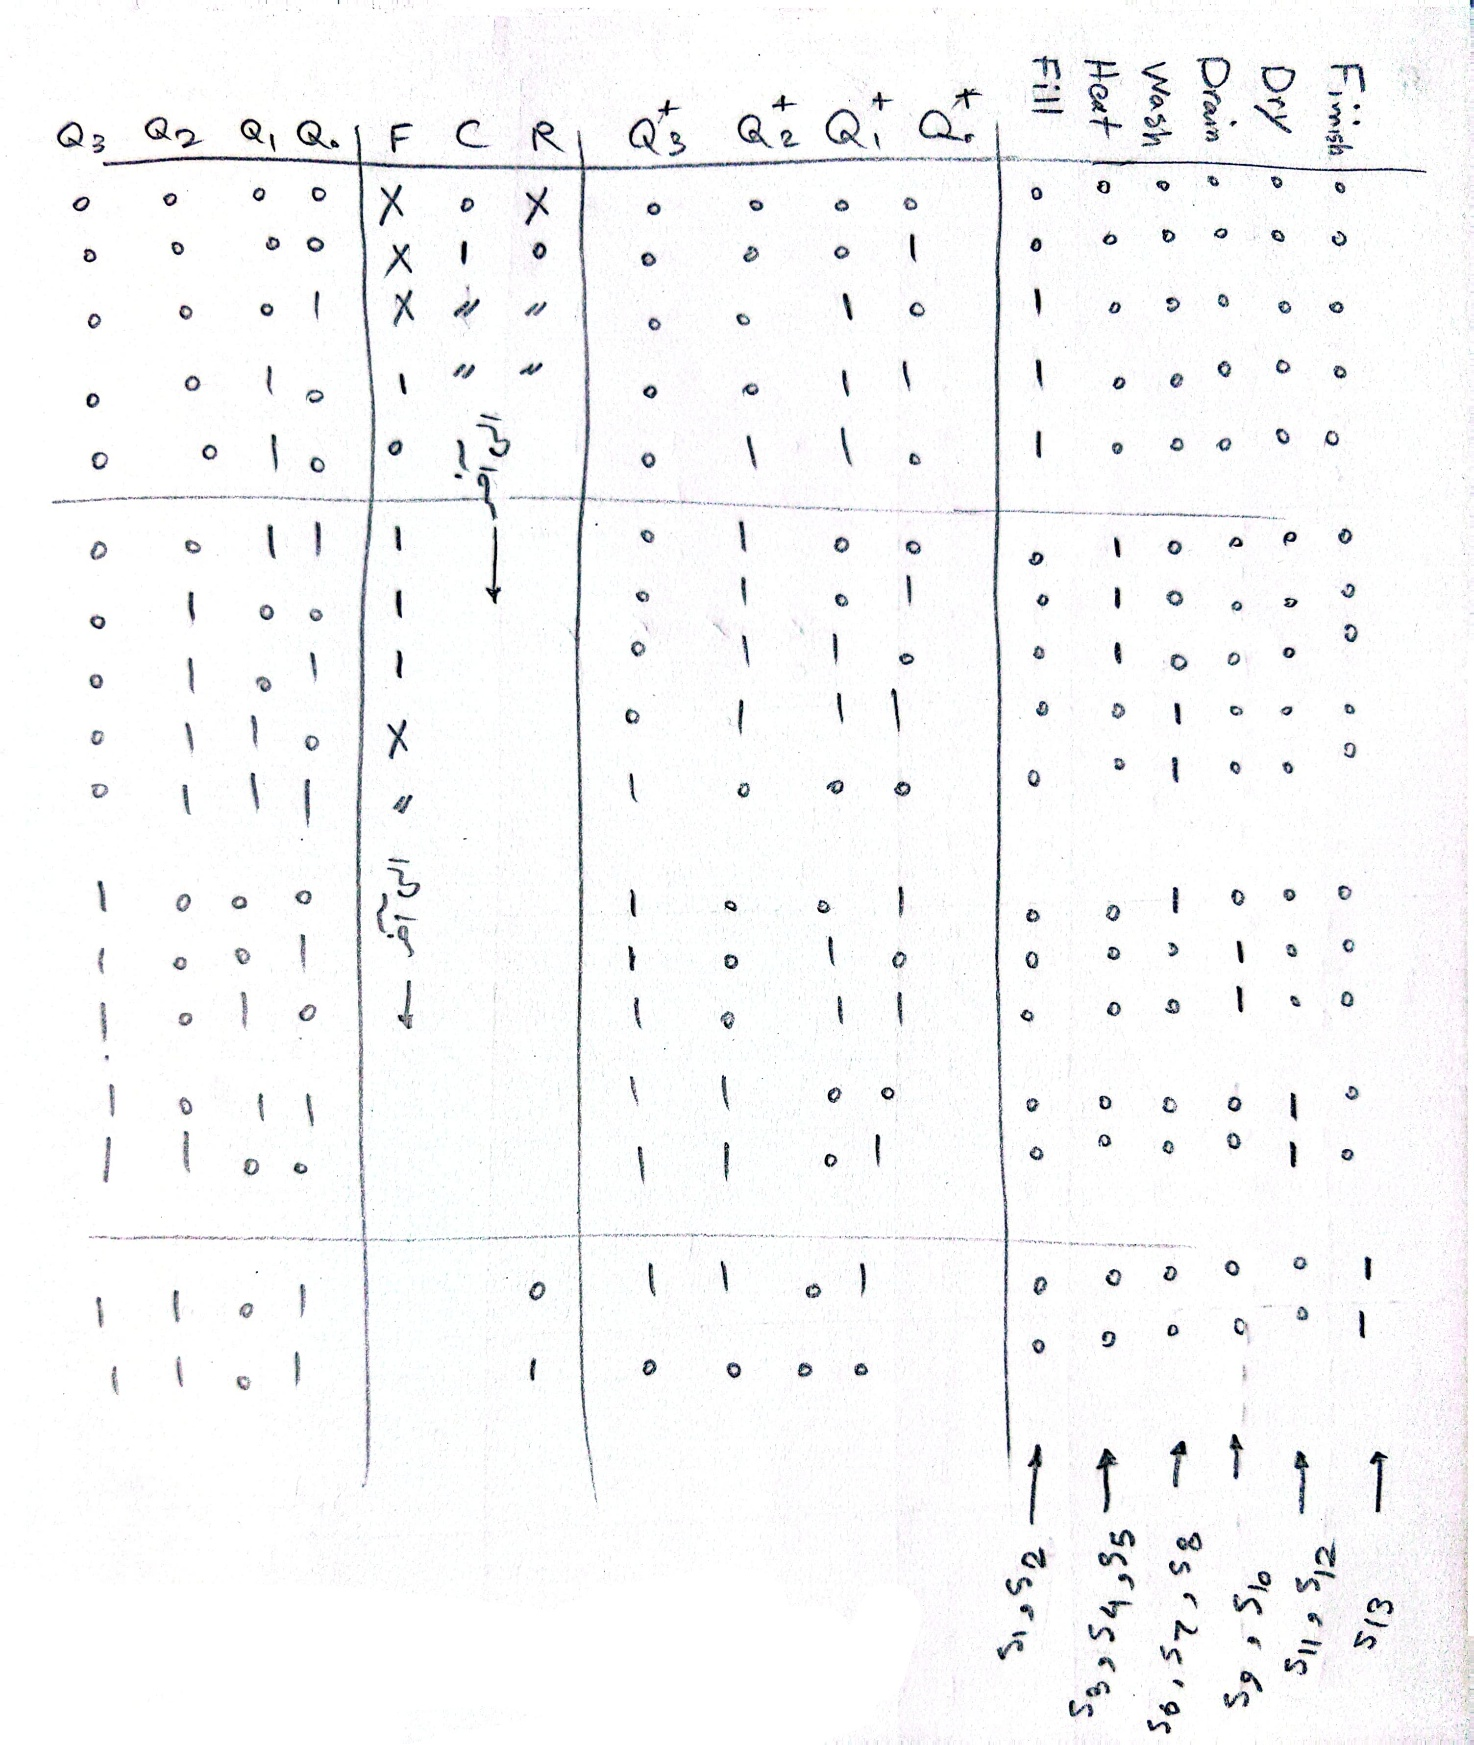 Q3 Q2 Q1 Q0 F C R Q3+ Q2+ Q1+ Q0+ Fill Heat Wash Drain Dry Finish
0 0 0 0 X 0 X 0 0 0 0 0 0 0 0 0 0
0 0 0 0 X 1 0 0 0 0 1 0 0 0 0 0 0
0 0 0 1 X " " 0 0 1 0 1 0 0 0 0 0
0 0 1 0 1 " " 0 0 1 1 1 0 0 0 0 0
0 0 1 0 0 0 1 1 0 1 0 0 0 0 0
0 0 1 1 1 0 1 0 0 0 1 0 0 0 0
0 1 0 0 1 0 1 0 1 0 1 0 0 0 0
0 1 0 1 1 0 1 1 0 0 1 0 0 0 0
0 1 1 0 X 0 1 1 1 0 0 1 0 0 0
0 1 1 1 " 1 0 0 0 0 0 1 0 0 0
1 0 0 0 1 0 0 1 0 0 1 0 0 0
1 0 0 1 1 0 1 0 0 0 0 1 0 0
1 0 1 0 1 0 1 1 0 0 0 1 0 0
1 0 1 1 1 1 0 0 0 0 0 0 1 0
1 1 0 0 1 1 0 1 0 0 0 0 1 0
1 1 0 1 0 1 1 0 1 0 0 0 0 0 1
1 1 0 1 1 0 0 0 0 0 0 0 0 0 1
S1, S2 →
S3, S4, S5 →
S6, S7, S8 →
S9, S10 →
S11, S12 →
S13 →